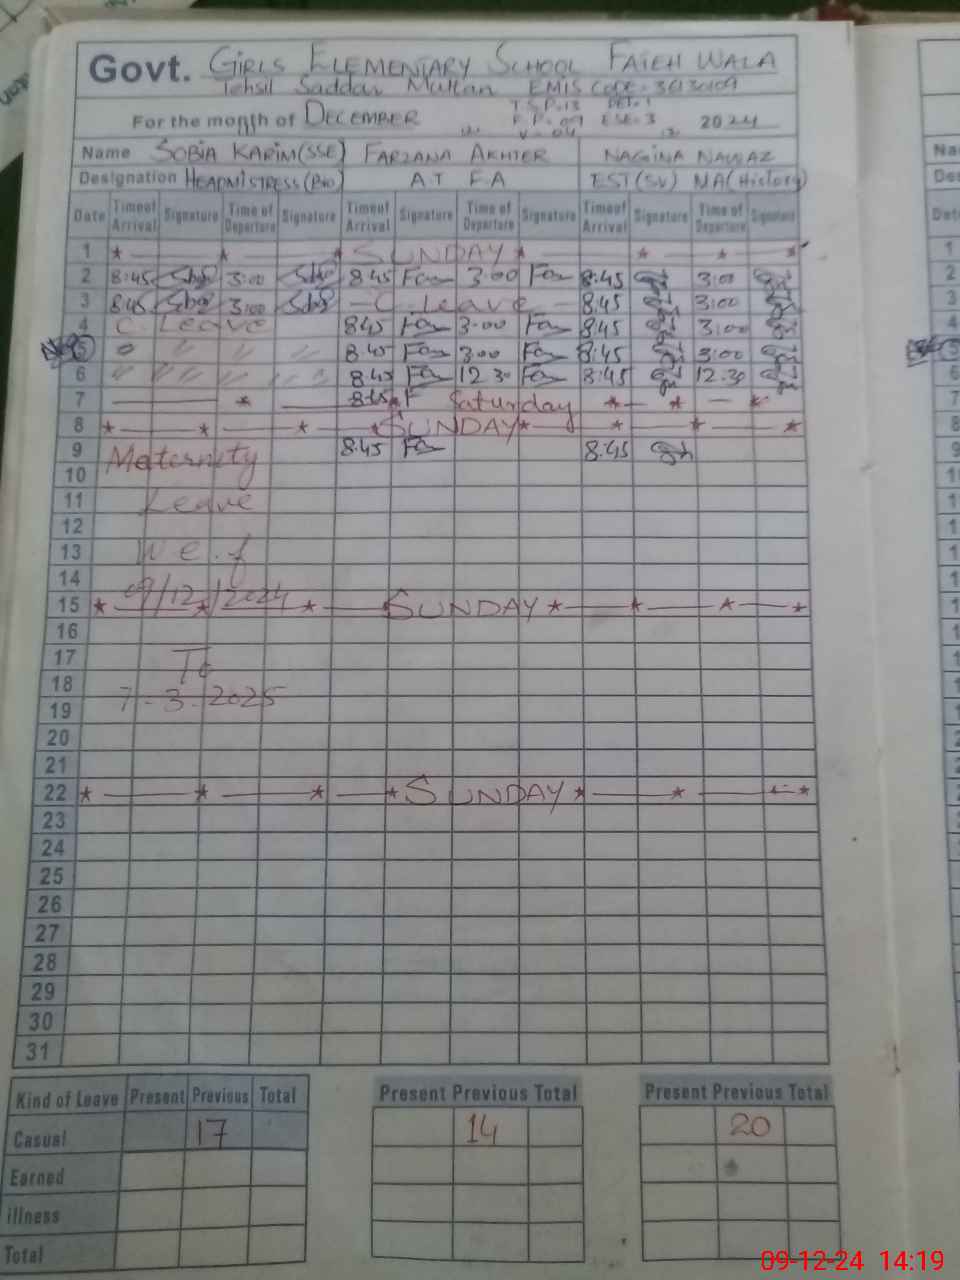 Govt. GIRLS ELEMENTARY SCHOOL FATEH WALA
Tehsil Saddar Multan EMIS CODE-
T.S.P-13
For the month of DECEMBER F.P-09 ESE-3 2024
V-04
Name SOBIA KARIM(SSE) FARZANA AKHTER NAGINA NAWAZ
Designation HEADMISTRESS(Bio) A.T F.A EST(SV) MA(History)
Date Time of Arrival Signature Time of Departure Signature Time of Arrival Signature Time of Departure Signature Time of Arrival Signature Time of Departure Signature
1 * * * SUNDAY * * * *
2 8:45 3:00 8:45 3:00 8:45 3:00
3 8:45 3:00 - C. Leave - 8:45 3:00
4 C. Leave 8:45 3:00 8:45 3:00
5 " " " 8:45 3:00 8:45 3:00
6 " " " " 8:45 12:30 8:45 12:30
7 * 8:45 Saturday * * *
8 * * * * SUNDAY * * * *
9 Maternity 8:45 8:45
10
11 Leave
12
13 w.e.f
14 09/12/2024
15 * * * SUNDAY * * * *
16
17 To
18
19 7-3-2025
20
21
22 * * * * SUNDAY * * *
23
24
25
26
27
28
29
30
31
Kind of Leave Present Previous Total Present Previous Total Present Previous Total
Casual 17 14 20
Earned
illness
Total
09-12-24 14:19